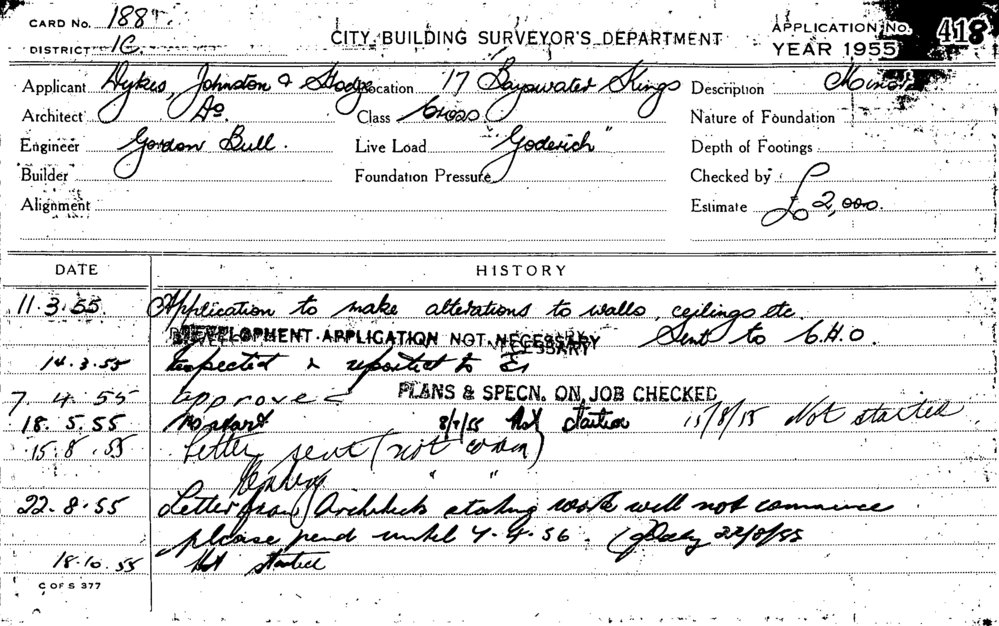 CARD No. 188
DISTRICT 1G
CITY BUILDING SURVEYOR'S DEPARTMENT
APPLICATION No. 418
YEAR 1955
Applicant Dykes, Johnston & Location 17 Bayswater Kings Description Minor
Architect Do. Class Cross Nature of Foundation
Engineer Gordon Bull. Live Load "Goderich" Depth of Footings
Builder Foundation Pressure Checked by
Alignment Estimate £2,000.
DATE HISTORY
11.3.55 Application to make alterations to walls, ceilings etc.
DEVELOPMENT APPLICATION NOT NECESSARY Sent to C.H.O.
14.3.55 Inspected & reported to
7.4.55 approved PLANS & SPECN. ON JOB CHECKED
18.5.55 No start 8/7/55 Not started 15/8/55 Not started
15.8.55 Letter sent (not com)
" "
22.8.55 Letter from Architects stating work will not commence
please pend until 4.4.56. 22/8/55
18.10.55 Not started
C OF S 377